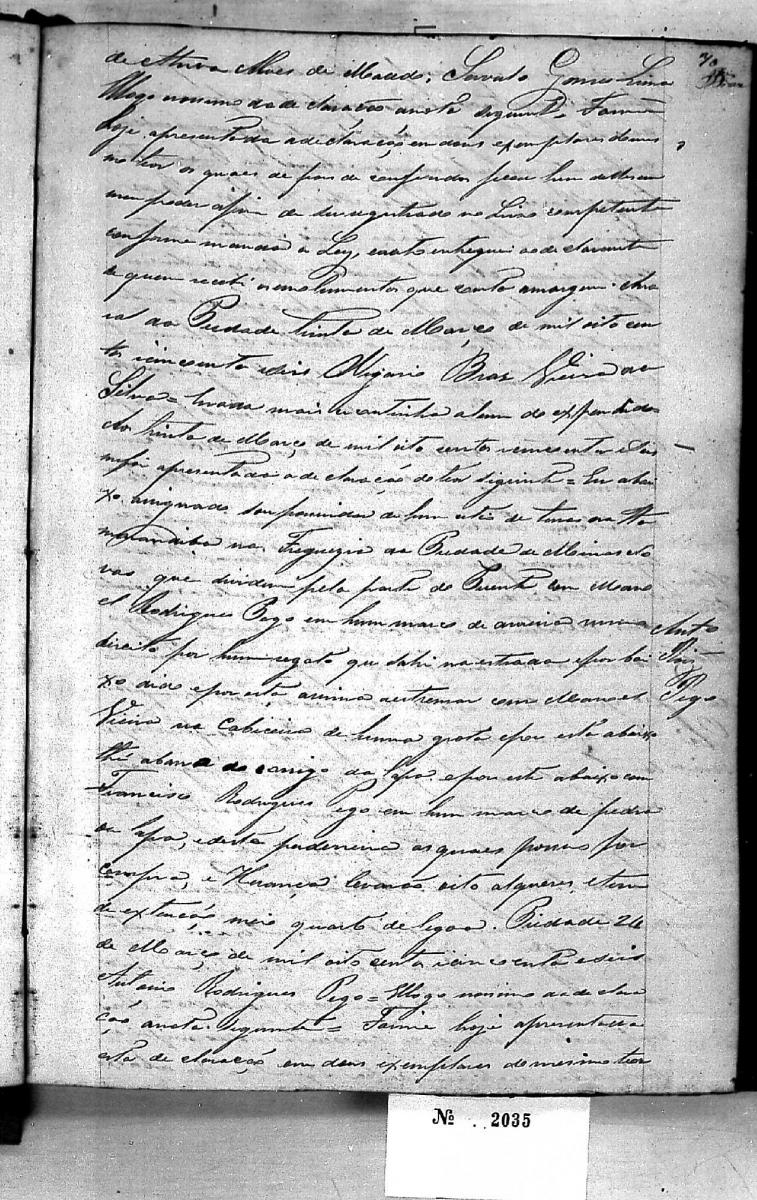 70
de Maria Alves de Macedo, Servulo Gomes Lima
Logo no simo da declaração a nota seguinte Foi-me
hoje apresentada a declaração em dous exemplares do mes
mo teor os quaes depois de conferidos ficou hum delles em
meu poder afim de ser registrado no Livro competente
conforme manda a Ley, e outro entreguei ao declarante
de quem recebi os emolumentos que consta a margem
da Piedade trinta de Março de mil oito cen
tos cincoenta e seis. Vigario Bras Vieira da
Silva = e nada mais se continha alem do expendido
Aos trinta de Março de mil oito centos cincoenta e seis
me foi apresentada a declaração do teor seguinte = Eu abai
xo assignado sou possuidor de hum citio de terras na
na Freguezia da Piedade de Minas No
vas que dividem pela parte do Puente com Mano
el Rodrigues Pego em hum marco de aroeira
direito por hum regato que dahi na estrada e por bai
xo e por esta acima a estremar com Manoel
Vieira na Cabiceira de huma grota e por esta abaixo
thé abarra do corrigo da lapa e por este abaixo com
Francisco Rodrigues Pego em hum marco de pedra
da lapa, e desta as quaes possuo por
compra, e Herança levarão oito alqueres, e tem
de extenção meio quarto de legoa. Piedade 24
de Março de mil oito centos cincoenta e seis
Antonio Rodrigues Pego = Logo no simo da decla
ção a nota seguinte = Foi-me hoje apresentada
esta declaração em dous exemplares do mesmo teor
Anto
Roiz
Pego
Nº 2035